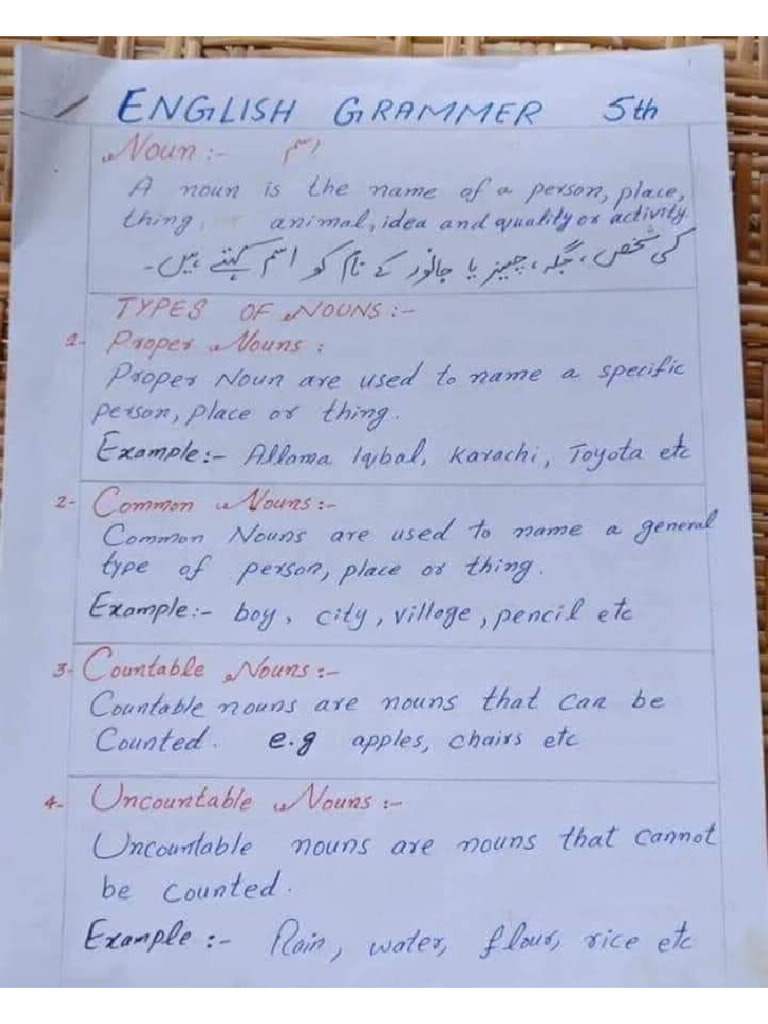 ENGLISH GRAMMER 5th
Noun:- اسم
A noun is the name of a person, place,
thing, animal, idea and quality or activity.
کسی شخص، جگہ، چیز یا جانور کے نام کو اسم کہتے ہیں۔
TYPES OF NOUNS:-
1- Proper Nouns:
Proper Noun are used to name a specific
person, place or thing.
Example:- Allama Iqbal, Karachi, Toyota etc
2- Common Nouns:-
Common Nouns are used to name a general
type of person, place or thing.
Example:- boy, city, village, pencil etc
3- Countable Nouns:-
Countable nouns are nouns that can be
Counted. e.g apples, chairs etc
4- Uncountable Nouns:-
Uncountable nouns are nouns that cannot
be counted.
Example:- Rain, water, flour, rice etc